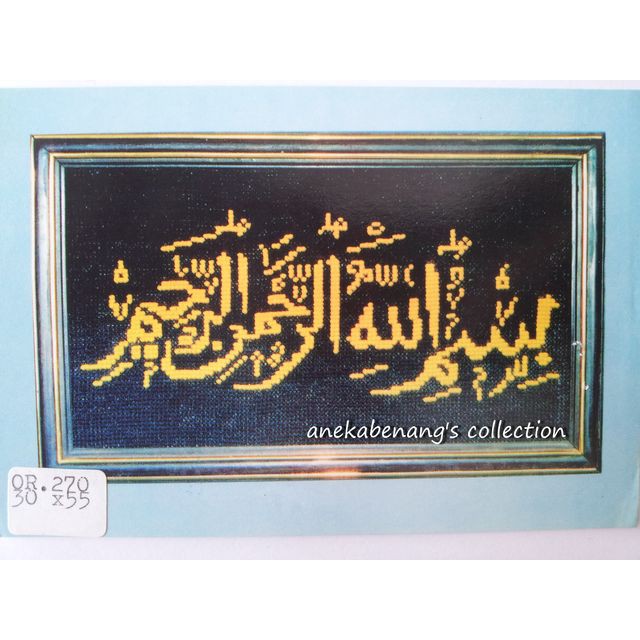 بسم الله الرحمن الرحيم
anekabenang's collection
OR.270
30 x55